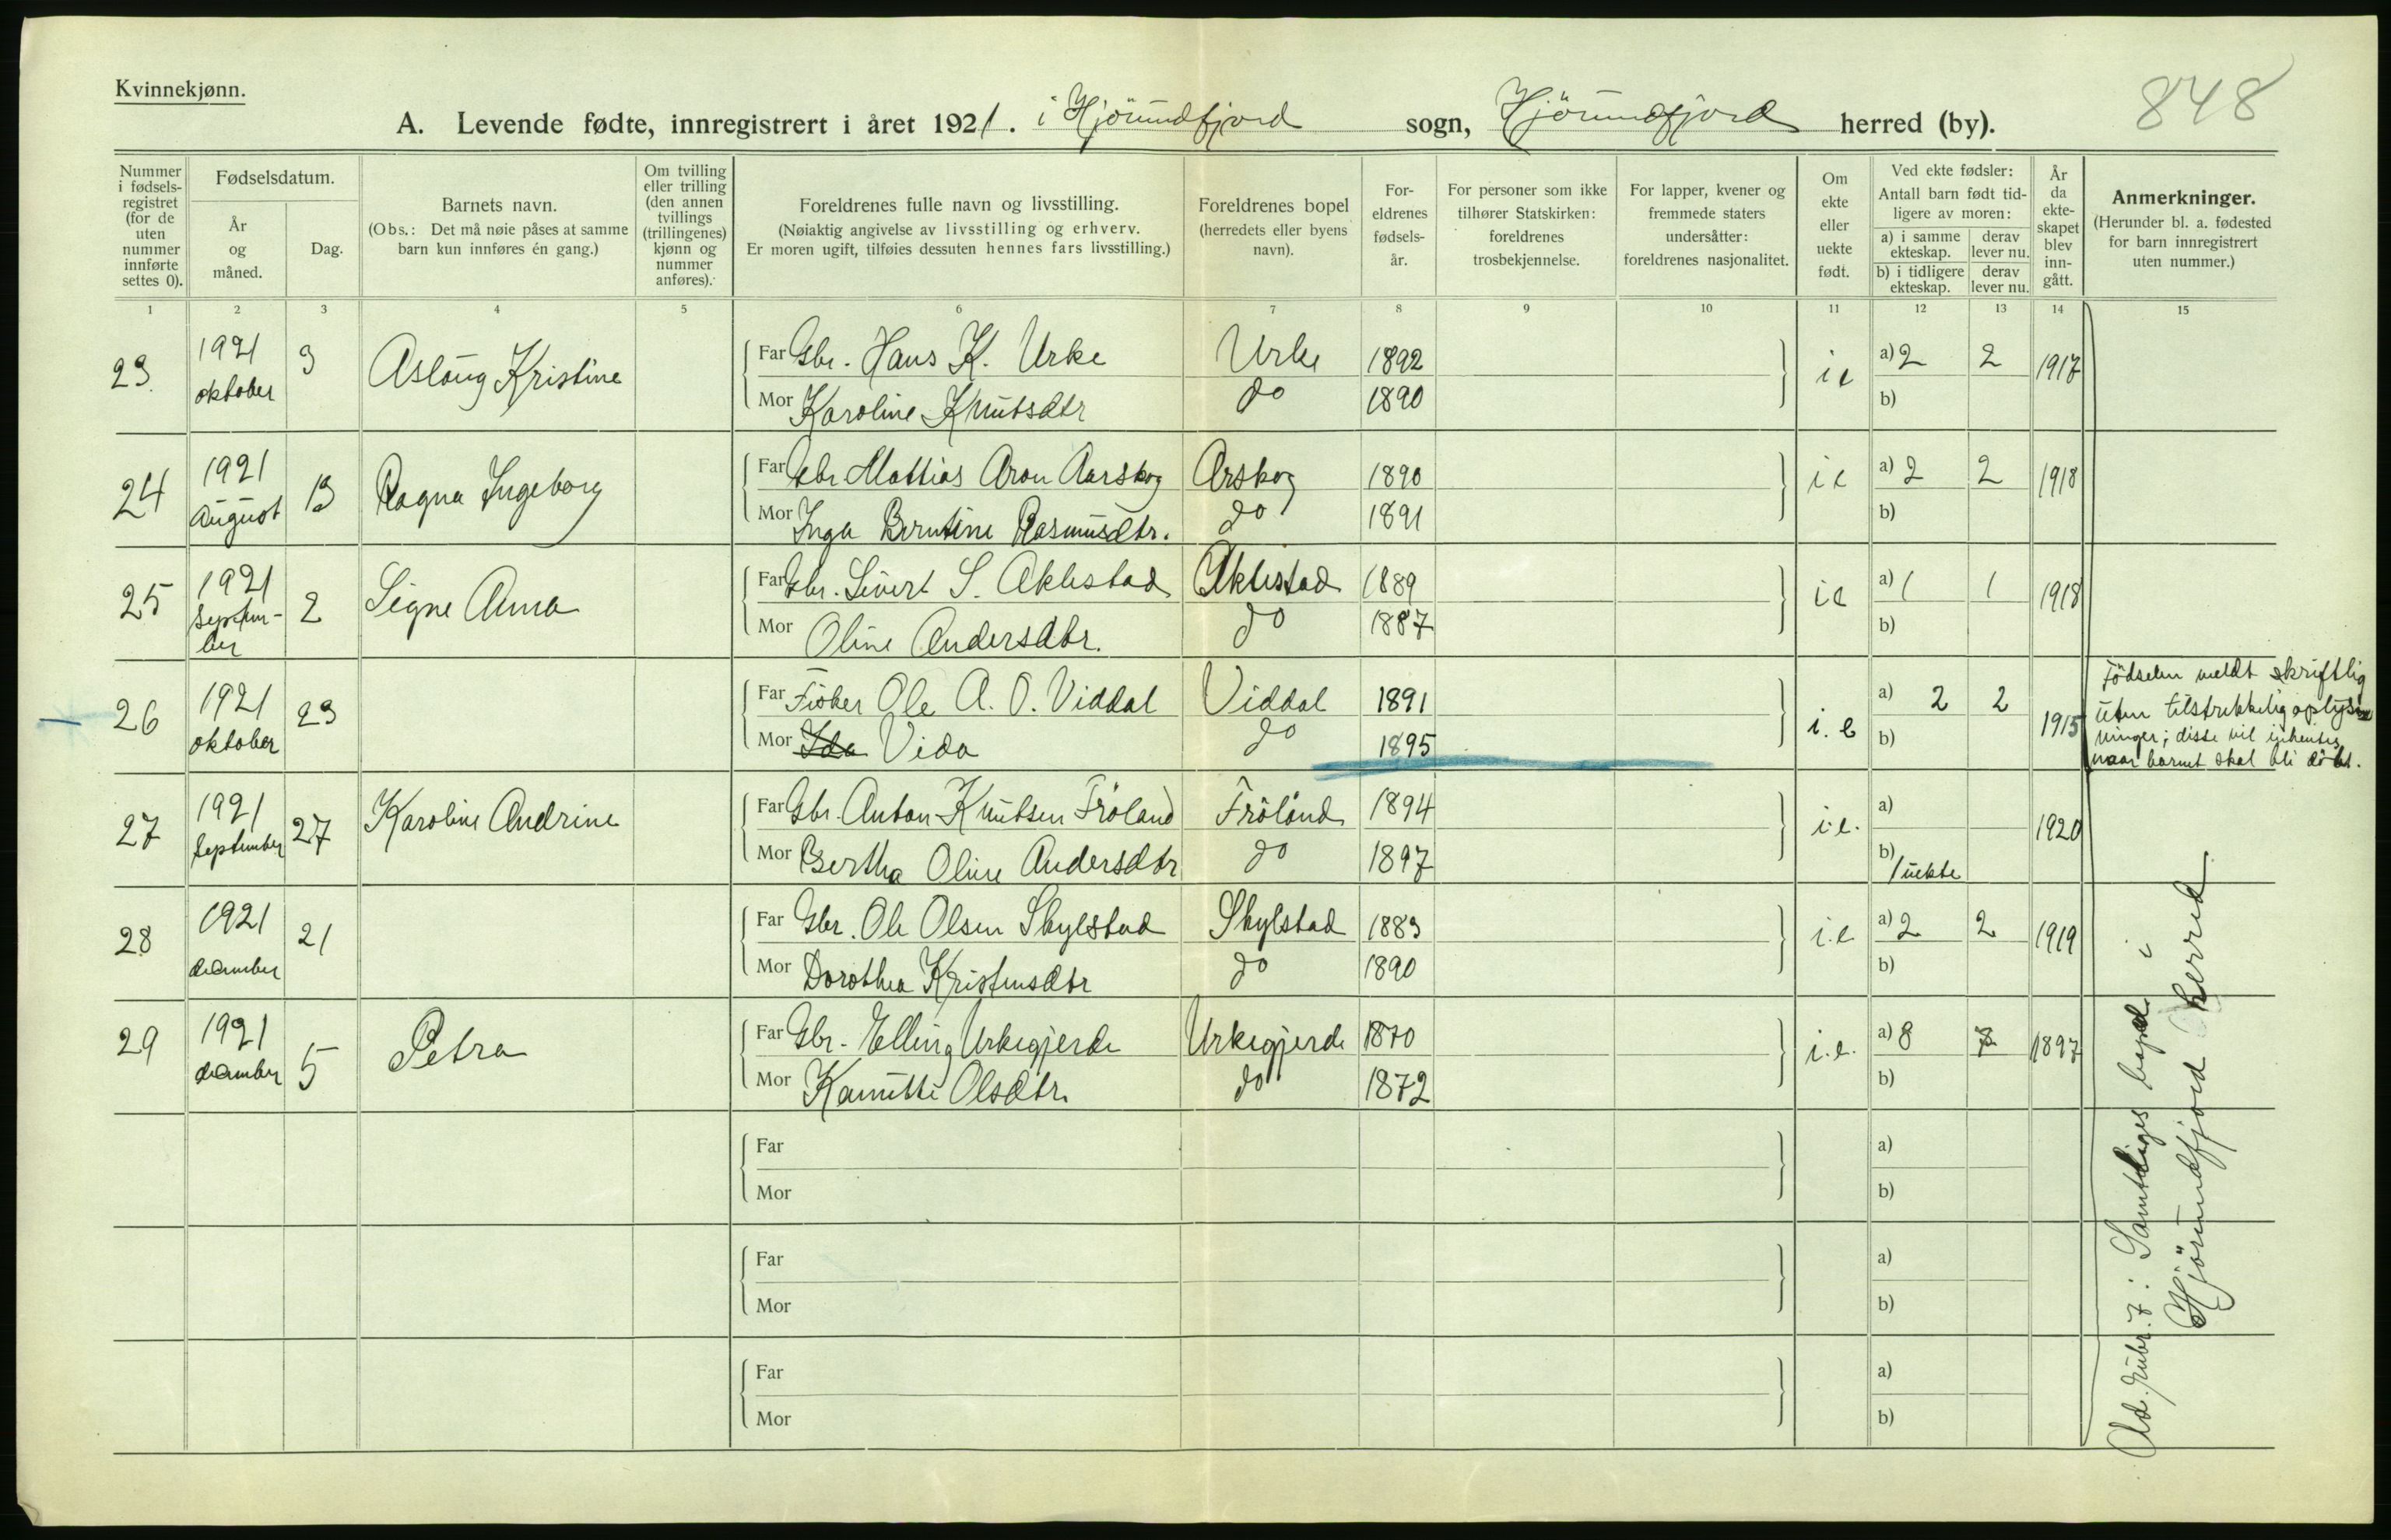 Kvinnekjønn.
848
A. Levende fødte, innregistrert i året 1921. i Hjörundfjord sogn, Hjörundfjord herred (by).
Nummer i fødsels- registret (for de uten nummer innførte settes 0).
Fødselsdatum.
År og måned.
Dag.
Barnets navn.
(Obs.: Det må nøie påses at samme barn kun innføres én gang.)
Om tvilling eller trilling (den annen tvillings (trillingenes) kjønn og nummer anføres).
Foreldrenes fulle navn og livsstilling.
(Nøiaktig angivelse av livsstilling og erhverv.
Er moren ugift, tilføies dessuten hennes fars livsstilling.)
Foreldrenes bopel (herredets eller byens navn).
For- eldrenes fødsels- år.
For personer som ikke tilhører Statskirken: foreldrenes trosbekjennelse.
For lapper, kvener og fremmede staters undersåtter: foreldrenes nasjonalitet.
Om ekte eller uekte født.
Ved ekte fødsler:
Antall barn født tid- ligere av moren:
a) i samme ekteskap.
derav lever nu.
b) i tidligere ekteskap.
derav lever nu.
År da ekte- skapet blev inn- gått.
Anmerkninger.
(Herunder bl. a. fødested for barn innregistrert uten nummer.)
1 2 3 4 5 6 7 8 9 10 11 12 13 14 15
23. 1921 oktober 3 Aslöug Kristine
Far Gbr. Hans K. Urke Urke 1892 ie a) 2 2 1917
Mor Karoline Knutsdtr do 1890 b)
24 1921 August 13 Ragna Ingeborg
Far Gbr Mattias Aron Aarskog Arskog 1890 ie a) 2 2 1918
Mor Inga Berntine Rasmusdtr. do 1891 b)
25 1921 Septem- ber 2 Signe Anna
Far Gbr. Sivert S. Aklestad Aklestad 1889 ie a) 1 1 1918
Mor Oline Andersdtr. do 1887 b)
26 1921 oktober 23
Far Fisker Ole A. O. Viddal Viddal 1891 i.e a) 2 2 1915
Mor Ida Vida do 1895 b)
Födselen meldt skriftlig
uten tilstrekkelig oplys
ninger; disse vil inhentes
naar barnet skal bli döbt.
27 1921 September 27 Karoline Andrine
Far Gbr. Anton Knutsen Fröland Fröland 1894 i.e. a) 1920
Mor Bertha Oline Andersdtr do 1897 b) 1 uekte
28 1921 december 21
Far Gbr. Ole Olsen Skylstad Skylstad 1883 i.e a) 2 2 1919
Mor Dorothea Kristensdtr do 1890 b)
29 1921 december 5 Petra
Far Gbr. Elling Urkegjerde Urkegjerde 1870 i.e. a) 8 1897
Mor Kanutte Olsdtr. do 1872 b)
Far a)
Mor b)
Far a)
Mor b)
Far a)
Mor b)
Ad. rubr. 7: Samtliges bopel i
Hjörundfjord herred